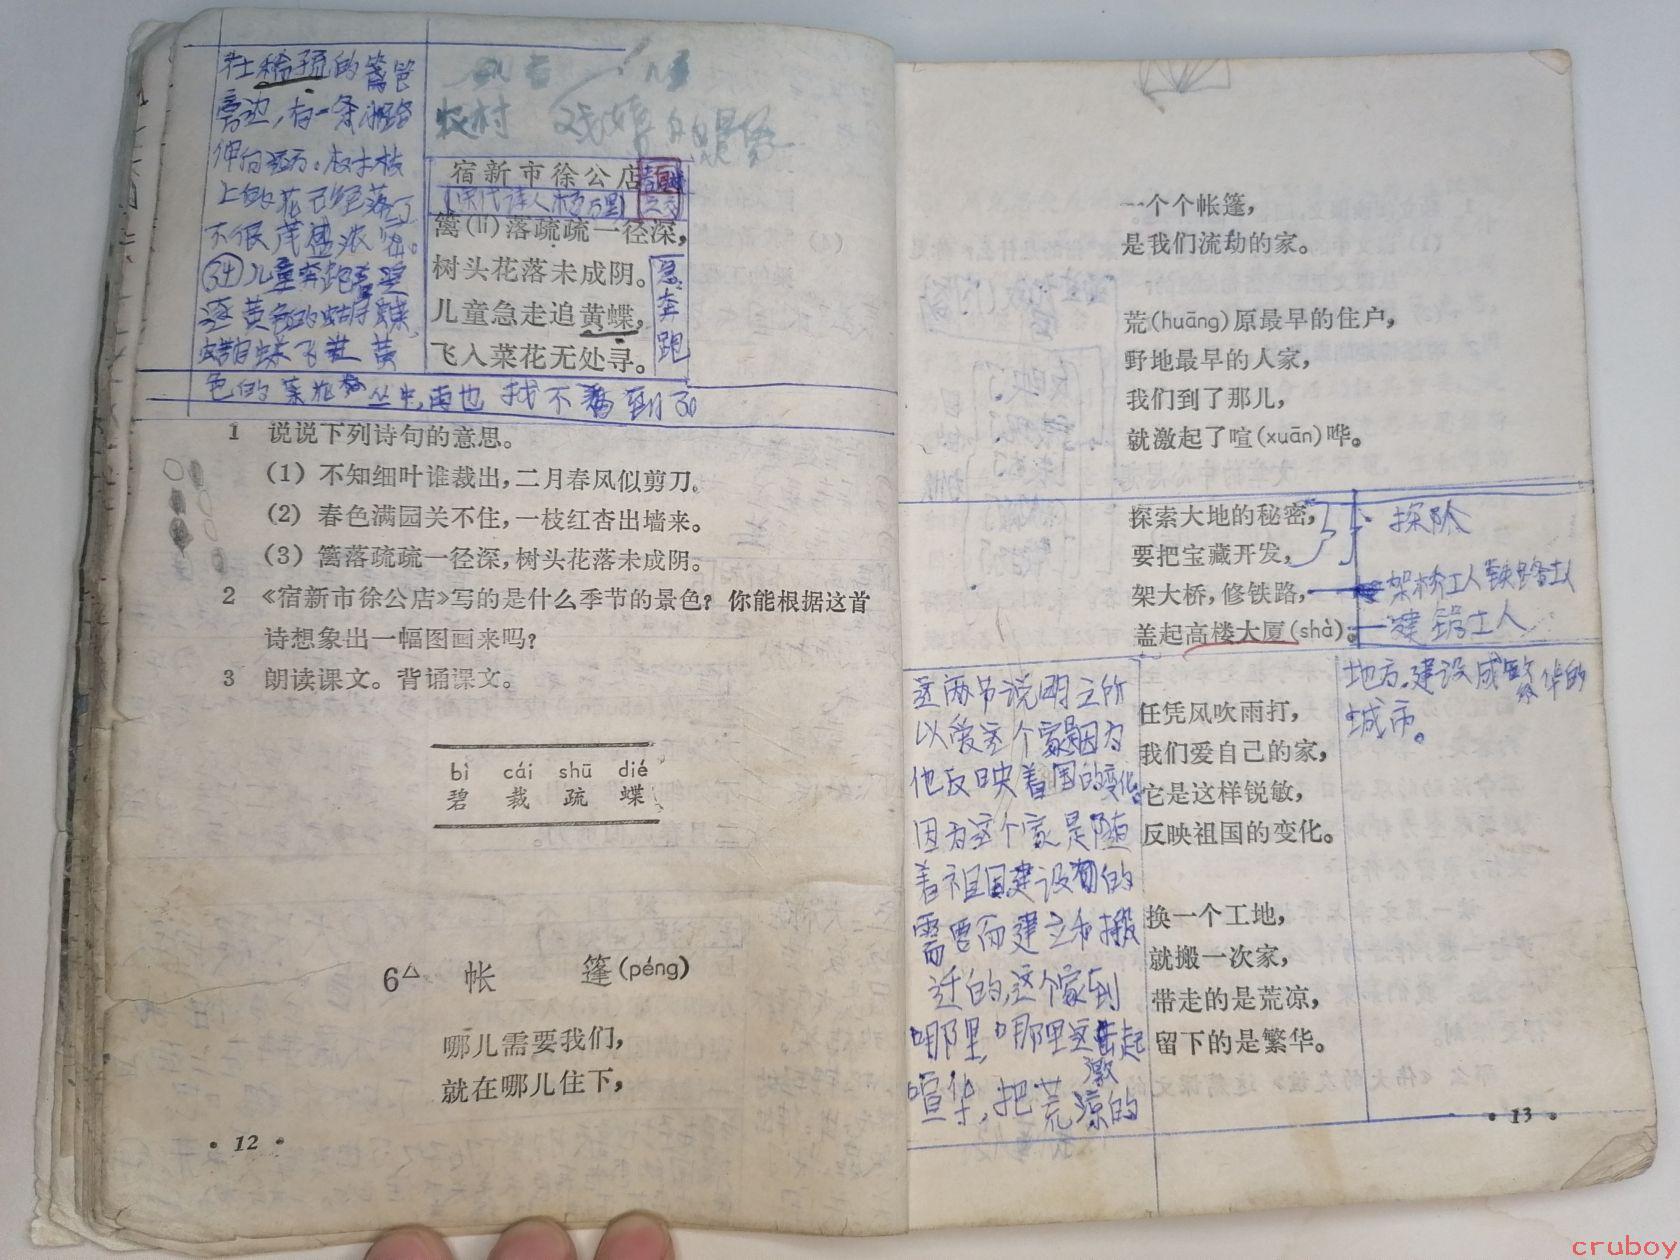 在稀疏的篱笆
旁边,有一条小路
伸向远方。树木枝
上的花已经落了
不很茂盛浓密。
儿童奔跑着追
逐黄色的蝴蝶,
蝴蝶飞进黄
色的菜花丛中,再也找不到了
农村 的景象
宿新市徐公店
(宋代诗人杨万里)
篱(lí)落疏疏一径深,
树头花落未成阴。
儿童急走追黄蝶,
飞入菜花无处寻。
急
奔
跑
1 说说下列诗句的意思。
(1) 不知细叶谁裁出,二月春风似剪刀。
(2) 春色满园关不住,一枝红杏出墙来。
(3) 篱落疏疏一径深,树头花落未成阴。
2 《宿新市徐公店》写的是什么季节的景色?你能根据这首
诗想象出一幅图画来吗?
3 朗读课文。背诵课文。
bì cái shū dié
碧 裁 疏 蝶
6△ 帐 篷(péng)
哪儿需要我们,
就在哪儿住下,
• 12 •
一个个帐篷,
是我们流动的家。
荒(huāng)原最早的住户,
野地最早的人家,
我们到了那儿,
就激起了喧(xuān)哗。
探索大地的秘密,
要把宝藏开发,
架大桥,修铁路,
盖起高楼大厦(shà)。
探险
架桥工人 铁路工人
建 工人
任凭风吹雨打,
我们爱自己的家,
它是这样锐敏,
反映祖国的变化。
换一个工地,
就搬一次家,
带走的是荒凉,
留下的是繁华。
这两节说明之所
以爱这个家是因为
他反映着国的变化。
因为这个家是随
着祖国建设的
需要而建立和搬
迁的,这个家到
哪里,哪里这激起
喧华,把荒凉的
地方,建设成繁华的
城市。
• 13 •
cruboy